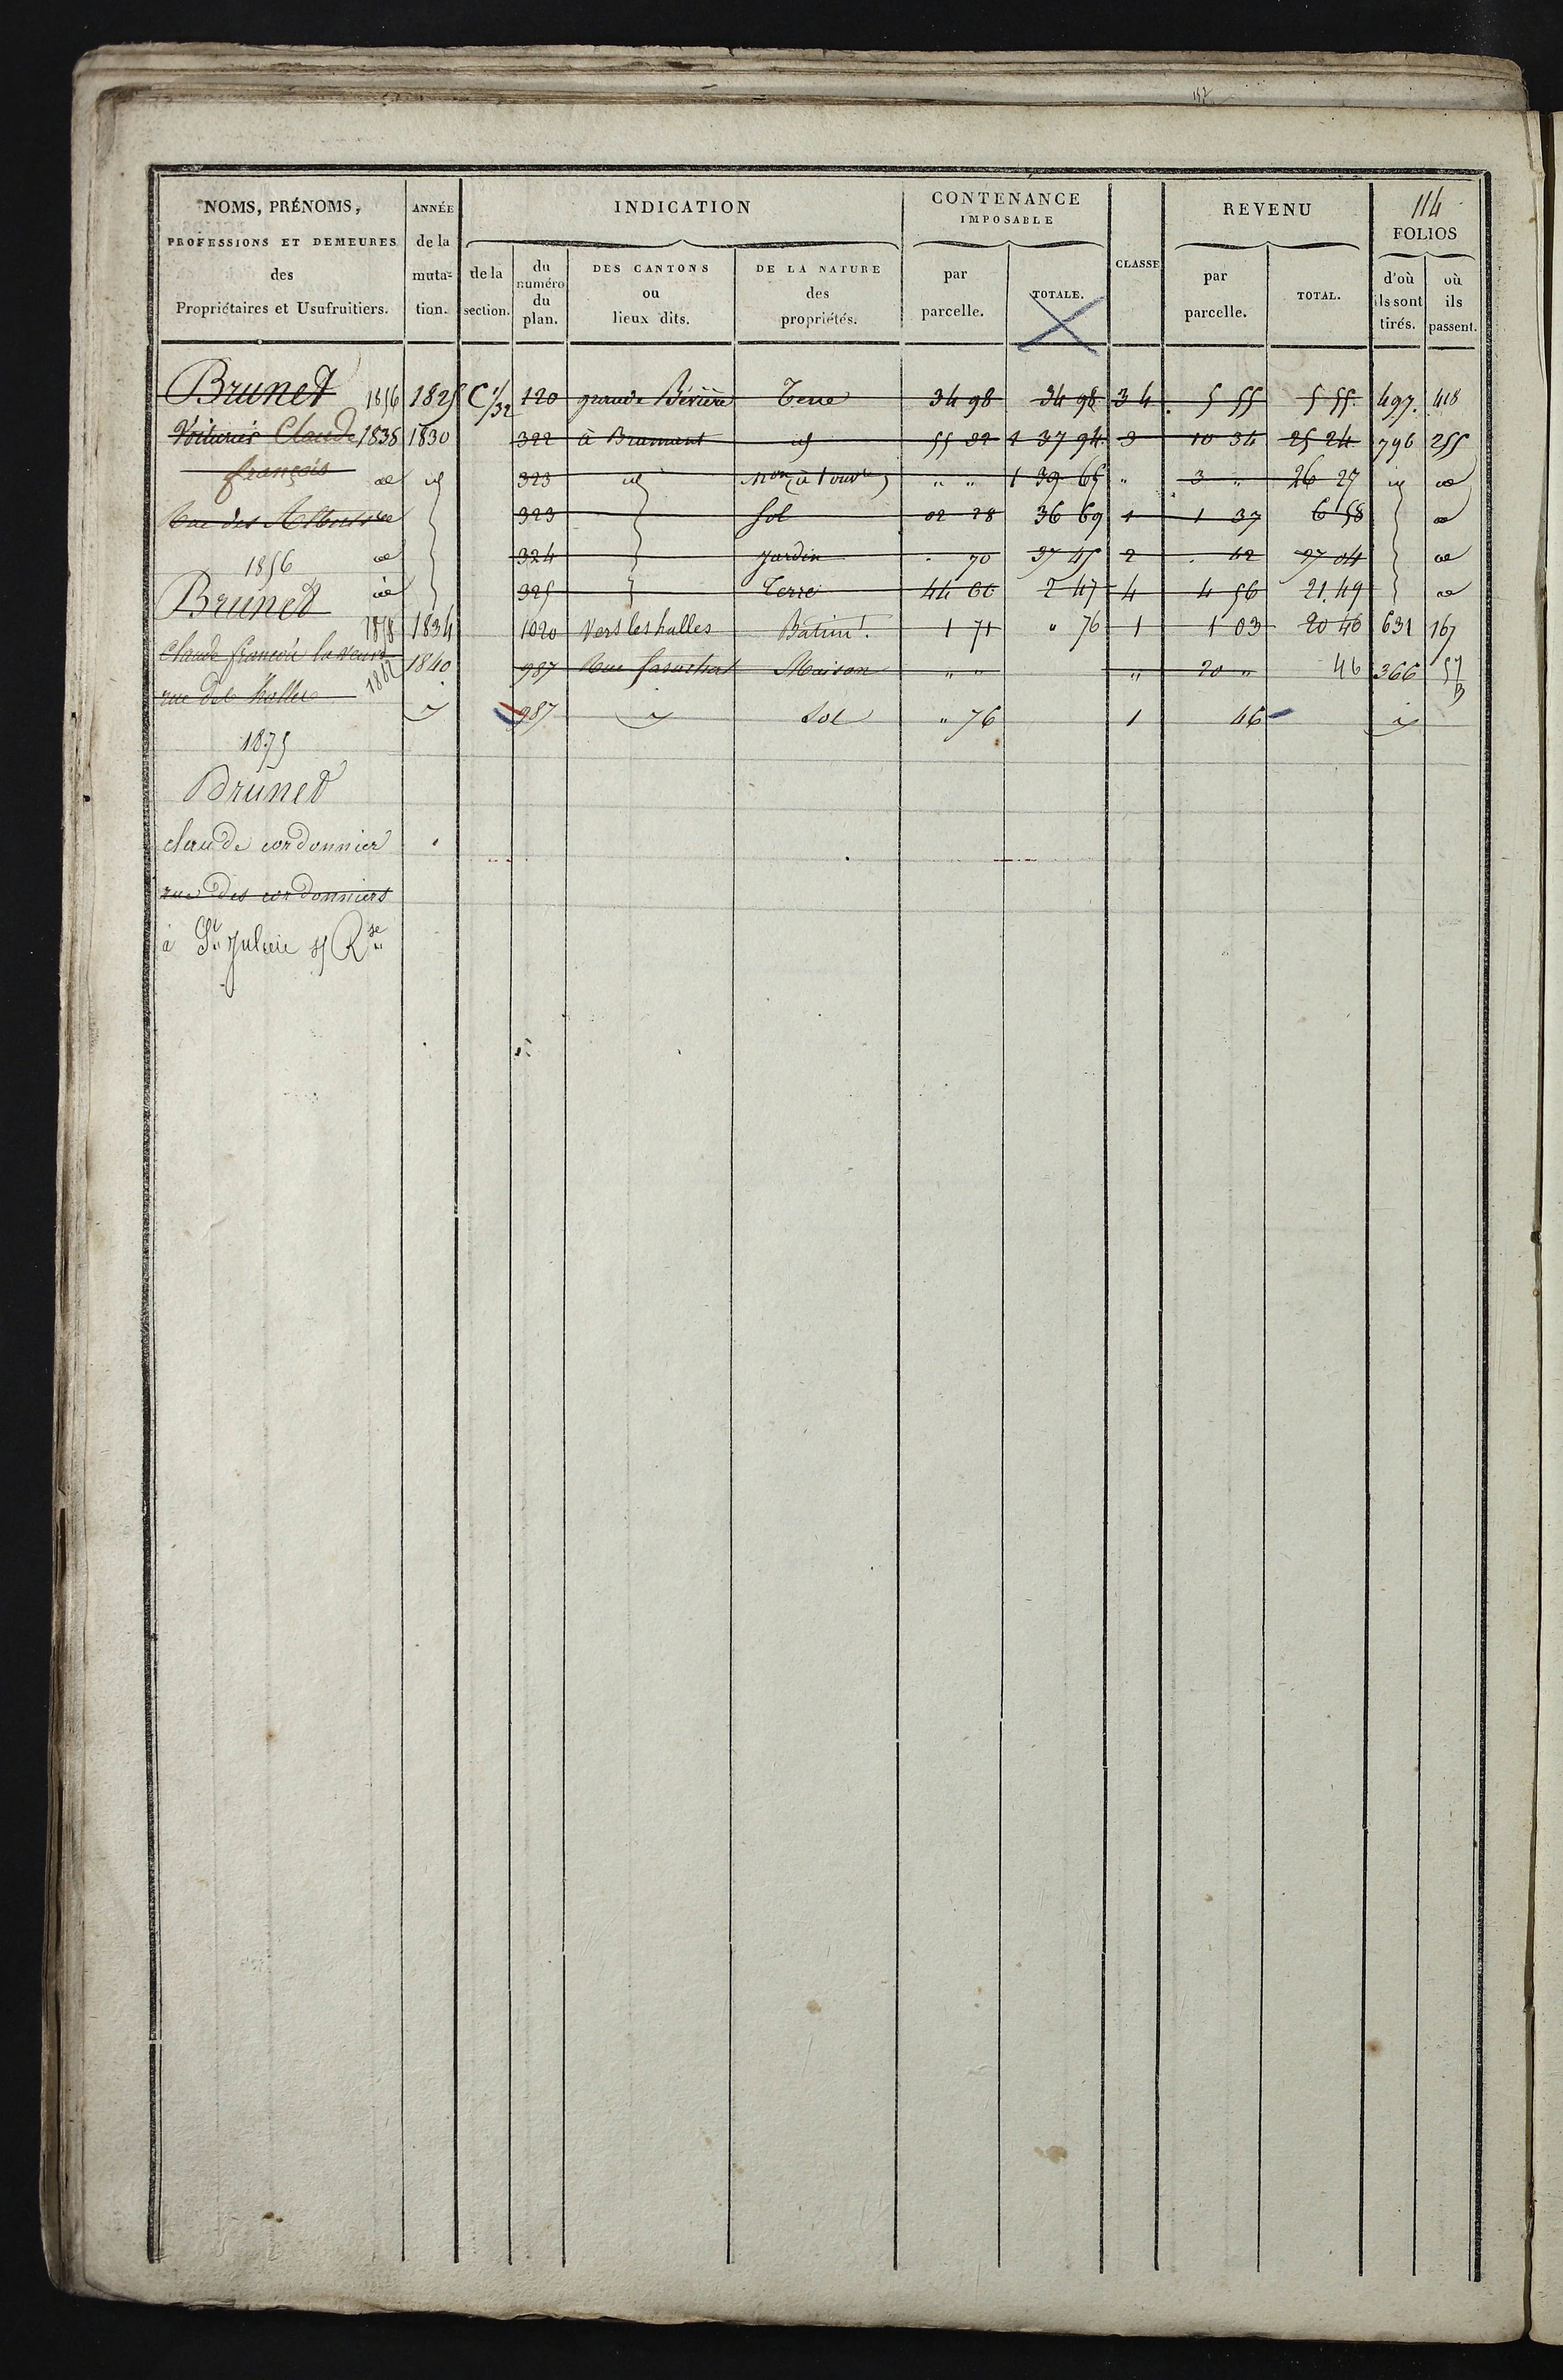 157
114
NOMS, PRÉNOMS, PROFESSIONS ET DEMEURES des Propriétaires et Usufruitiers.
ANNÉE de la muta- tion.
INDICATION
de la section.
du numéro du plan.
DES CANTONS ou lieux dits.
DE LA NATURE des propriétés.
CONTENANCE IMPOSABLE
par parcelle.
TOTALE.
CLASSE
REVENU
par parcelle.
TOTAL.
FOLIOS
d'où ils sont tirés.
où ils passent.
Brunet 1856 1825 C 1/32 120 grande Bévière Terre 34 98 34 98 3 4 5 55 5 55 497 418
Voiturier Claude 1838 1830 322 à Bramant id 55 32 1 37 94 3 10 34 25 24 796 255
françois id 323 id mon (à 1 ouvre) " " 1 39 65 " 3 " 26 27 id
Rue des 323 Sol 02 28 36 69 1 1 37 6 58
1856 324 Jardin 70 37 45 2 42 27 04
Brunet 325 Terre 44 66 2 47 4 4 56 21.49
1878 1834 1020 Vers les halles Batimt. 1 71 " 76 1 1 03 20 46 631 167
Claude françois la veuve 1882 1840 987 Rue Maison " " " 20 " 46 366 57
rue des halles 987 Sol " 76 1 46
1875
Brunet
claude cordonnier
rue des cordonniers
à St Julien s/ Rse